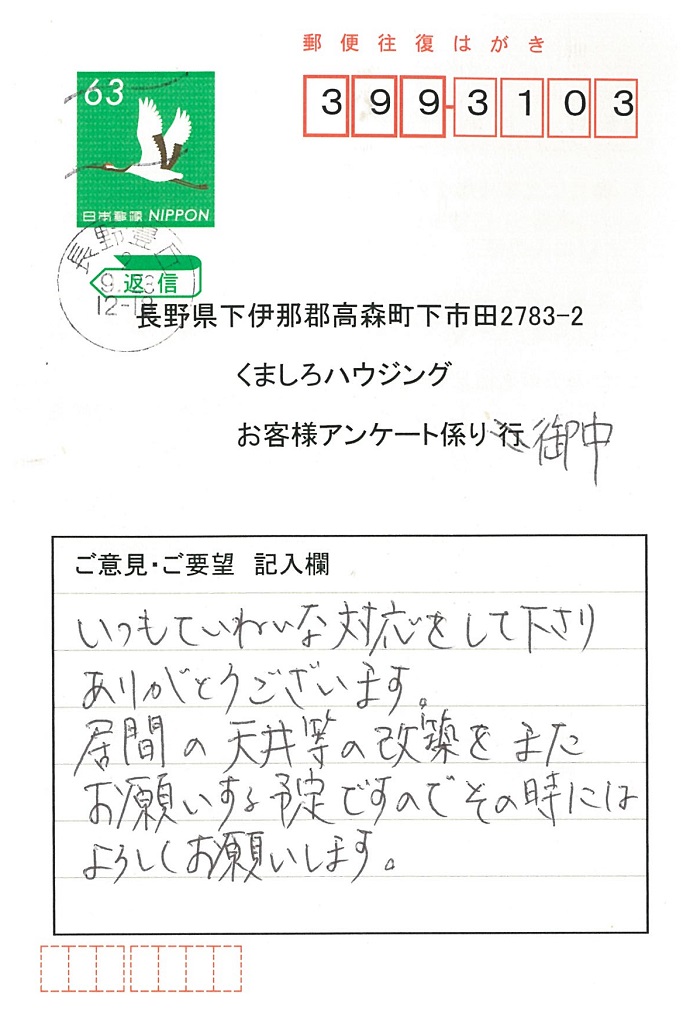 郵便往復はがき
399-3103
63
日本郵便 NIPPON
長野豊丘
返信
12-18
長野県下伊那郡高森町下市田2783-2
くましろハウジング
お客様アンケート係り 行 御中
ご意見・ご要望 記入欄
いつもていねいな対応をして下さり
ありがとうございます。
居間の天井等の改築をまた
お願いする予定ですのでその時には
よろしくお願いします。